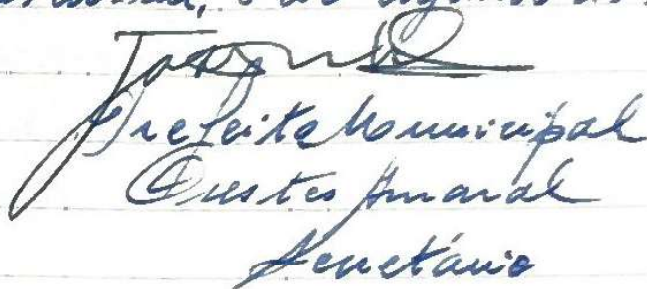 de agosto
Prefeito Municipal
Orestes Amaral
Secretário